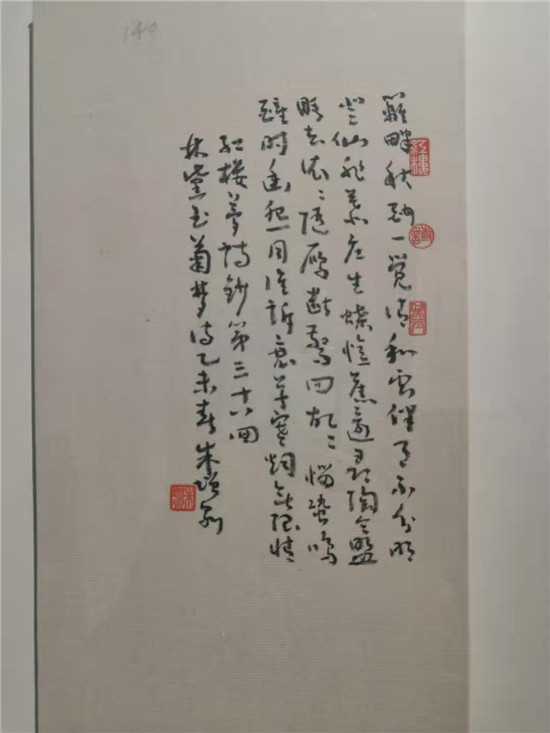 140
籬畔秋酣一覺清和雲伴月不分明
登仙非慕庄生蝶憶舊還尋陶令盟
睡去依〻隨雁斷驚回故〻惱蛩鳴
醒时幽怨同誰訴衰草寒烟無限情
紅楼夢詩鈔第三十八回
林黛玉菊梦诗乙未春朱增
紅樓